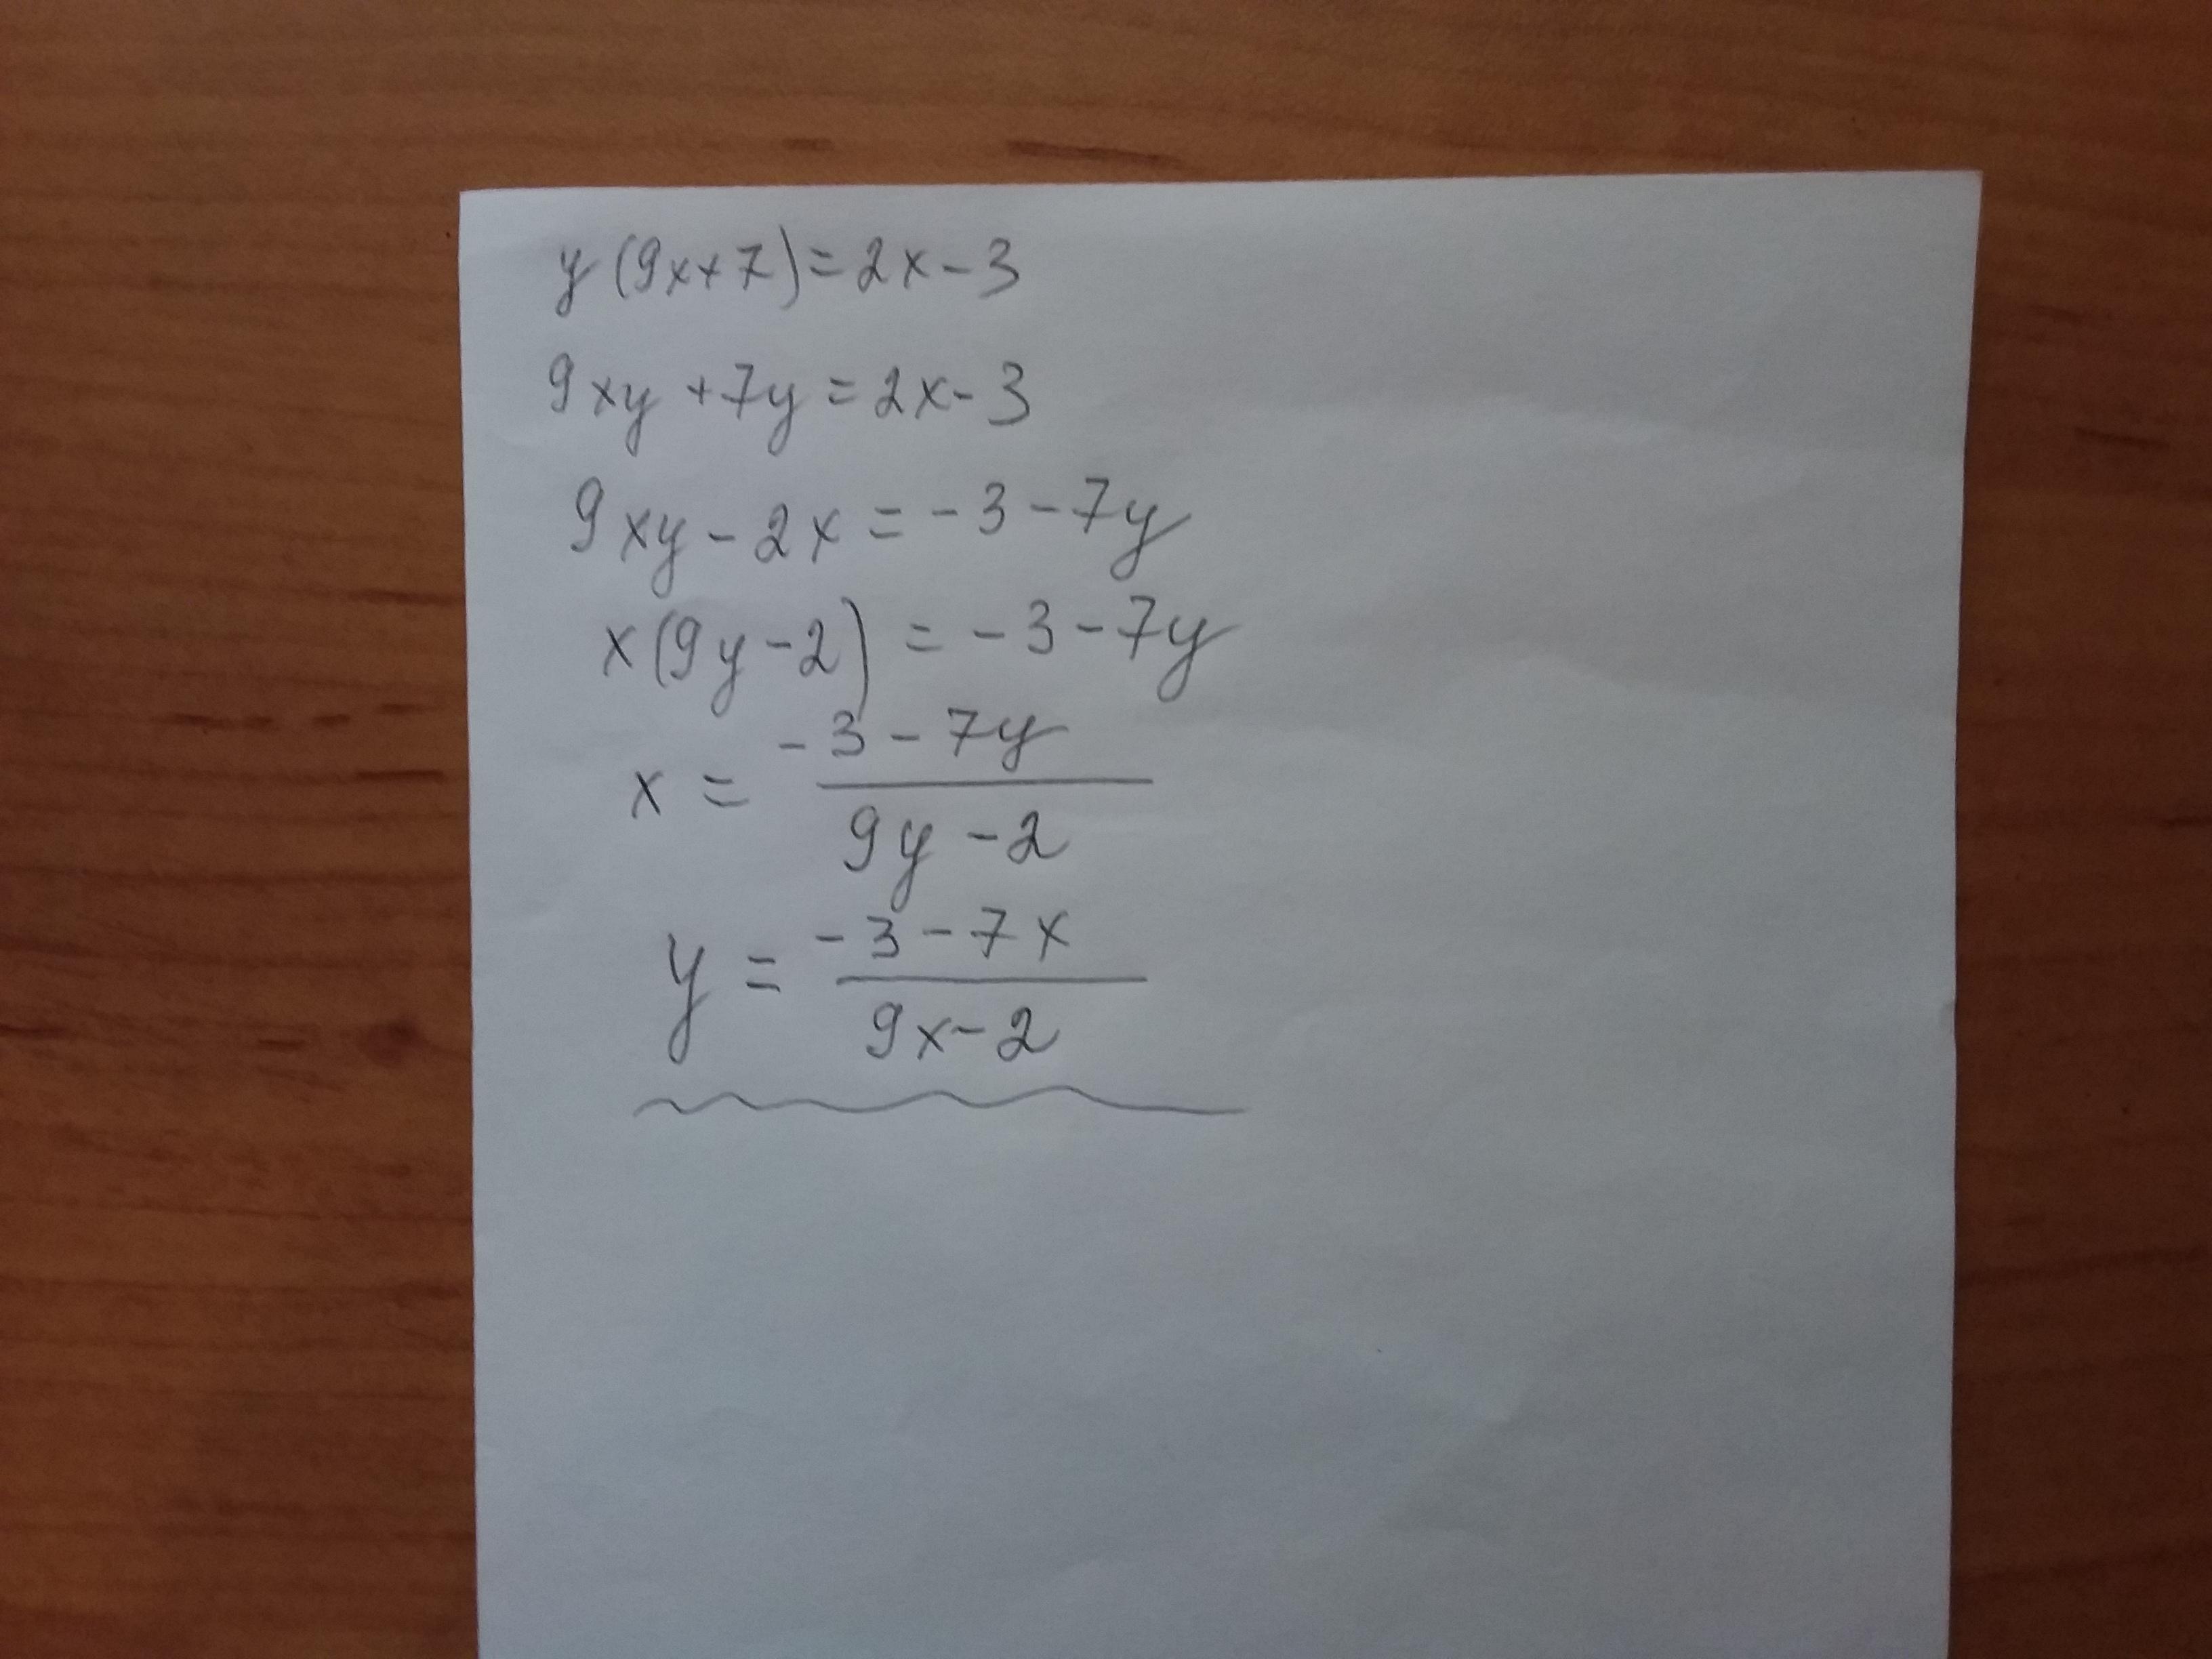 y(9x+7)=2x-3
9xy+7y=2x-3
9xy-2x=-3-7y
x(9y-2)=-3-7y
x = \frac{-3-7y}{9y-2}
y = \frac{-3-7x}{9x-2}